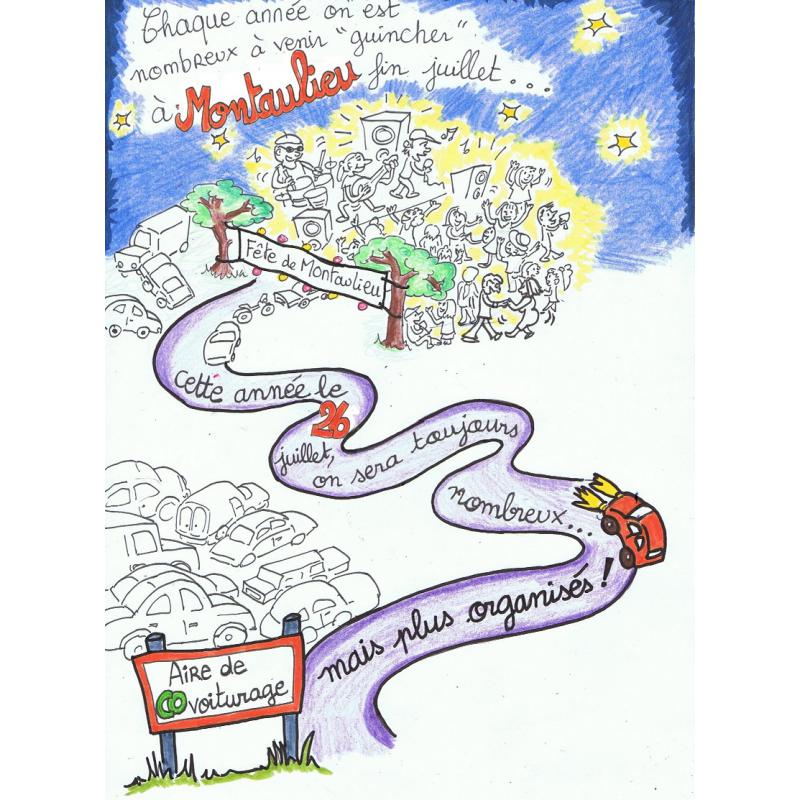 Chaque année on est
nombreux à venir "guincher"
à Montaulieu fin juillet...
Fête de Montaulieu
cette année le
26
juillet,
on sera toujours
nombreux...
mais plus organisés!
AIRE de
COvoiturage